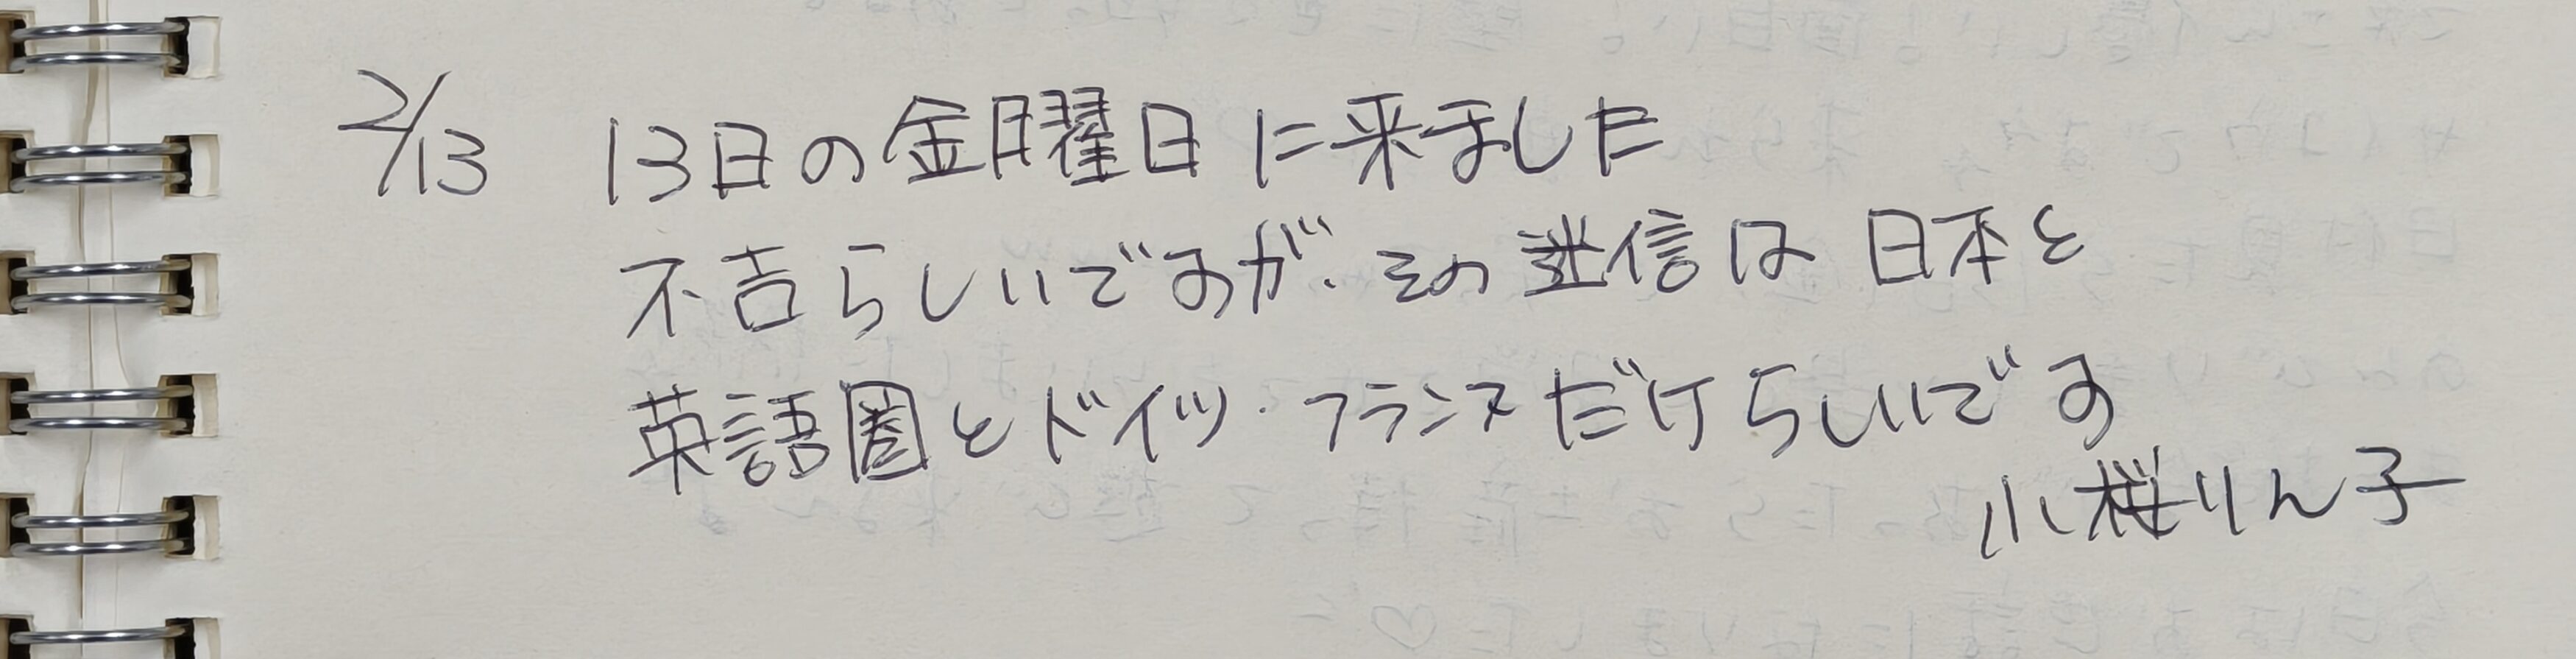 2/13 13日の金曜日に来ました
不吉らしいですが、その迷信は日本と
英語圏とドイツ・フランスだけらしいです
小桜りん子